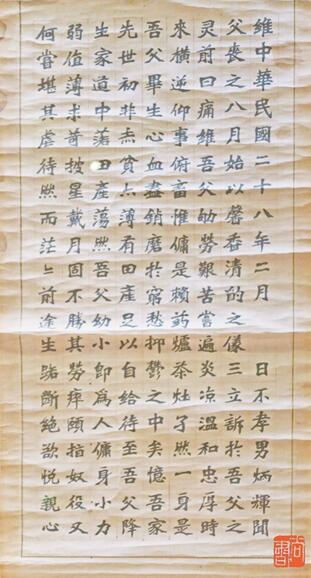 維中華民國二十八年二月　日不孝男炳輝聞
父喪之八月始以馨香清的之儀三立訴於吾父之
灵前曰痛維吾父劬勞艱苦嘗遍炎凉溫和忠厚時
來横逆仰事俯畜惟傭是賴药爐茶灶孑然一身是
吾父畢生心血盡銷磨於窮愁抑鬱之中矣憶吾家
先世初非赤貧亦薄有田產足以自給待至吾父降
生家道中落田產蕩然吾父幼小即為人傭身小力
弱值薄求苛披星戴月固不勝其勞瘁頤指奴役又
何嘗堪其虐待然而茫々前途生路斷絕欲悅親心